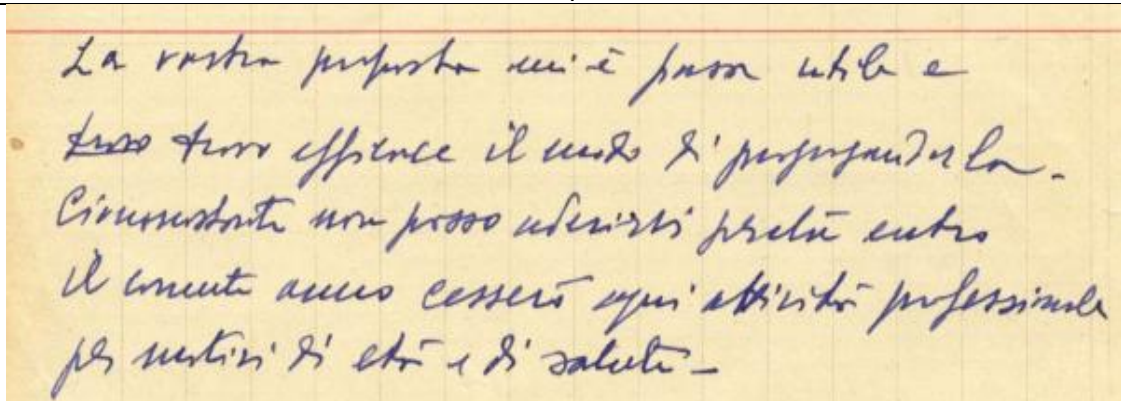 La vostra proposta mi è parsa utile e
trovo trovo efficace il modo di propagandarla.
Ciononostante non posso aderirvi perché entro
il corrente anno cesserò ogni attività professionale
per motivi di età e di salute -